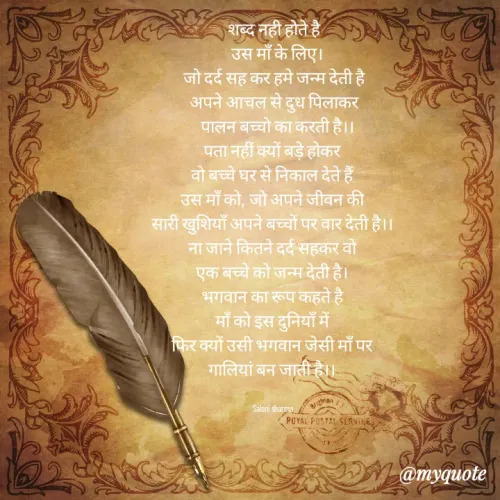 शब्द नही होते है
उस माँ के लिए।
जो दर्द सह कर हमे जन्म देती है
अपने आचल से दुध पिलाकर
पालन बच्चो का करती है।।
पता नहीं क्यों बड़े होकर
वो बच्चे घर से निकाल देते हैं
उस माँ को, जो अपने जीवन की
सारी खुशियाँ अपने बच्चों पर वार देती है।।
ना जाने कितने दर्द सहकर वो
एक बच्चे को जन्म देती है।
भगवान का रूप कहते है
माँ को इस दुनियाँ में
फिर क्यों उसी भगवान जेसी माँ पर
गालियां बन जाती है।।
Saloni
ROYAL POSTAL SERVICE
@myquote